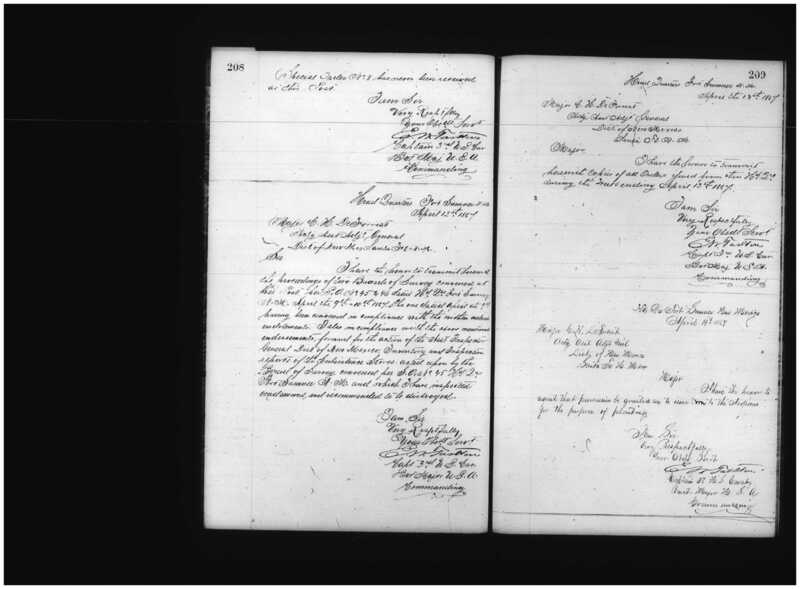 208
Special Orders No 8 has never been received
at this Post.
I am Sir
Very Respectfully
Your Obdt Servt
Captain 3rd U.S. Cav
Bvt Maj U.S.A.
Commanding
Head Quarters Fort Sumner N.M.
April 12th 1867
Major C. H. DeForrest
Actg Asst Adjt General
Dist of New Mex Santa Fe N.M.
Sir
I have the honor to transmit herewith
the proceedings of two Boards of Survey convened at
this Post per S.O. Nos 45 & 46 Hd Qrs Fort Sumner
N.M. April the 9th 10th 1867. The one dated April the 9th
having been convened in compliance with the within
endorsements. I also in compliance with the above mentioned
endorsements, forward for the action of the Asst Inspector
General Dist of New Mexico, Inventory and Inspection
reports of the Subsistence Stores acted upon by the
Board of Survey convened per S.O. No 45 Hd Qrs
Fort Sumner N.M. and which I have inspected
condemned, and recommended to be destroyed.
I am Sir
Very Respectfully
Your Obdt Servt
Capt 3rd U.S. Cav
Bvt Major U.S.A.
Commanding
209
Head Quarters Fort Sumner N.M.
April the 13th 1867
Major C. H. DeForrest
Actg Asst Adjt General
Dist of New Mexico
Santa Fe N.M.
Major
I have the honor to transmit
herewith copies of all Orders issued from this Hd Qrs
during the week ending April 13th 1867.
I am Sir
Very Respectfully
Your Obdt Servt
Capt 3rd U.S. Cav
Bvt Maj U.S.A.
Commanding
Hd Qrs Fort Sumner New Mexico
April 1867
Major C. H. DeForrest
Actg Asst Adjt Genl
Dist of New Mexico
Santa Fe N. Mexico
Major
I have the honor to
request that permission be granted me to issue to the Indians
for the purpose of planting
I am Sir
Very Respectfully
Your Obdt Servt
Captain 3d U.S. Cavalry
Bvt Major U.S.A.
Commanding